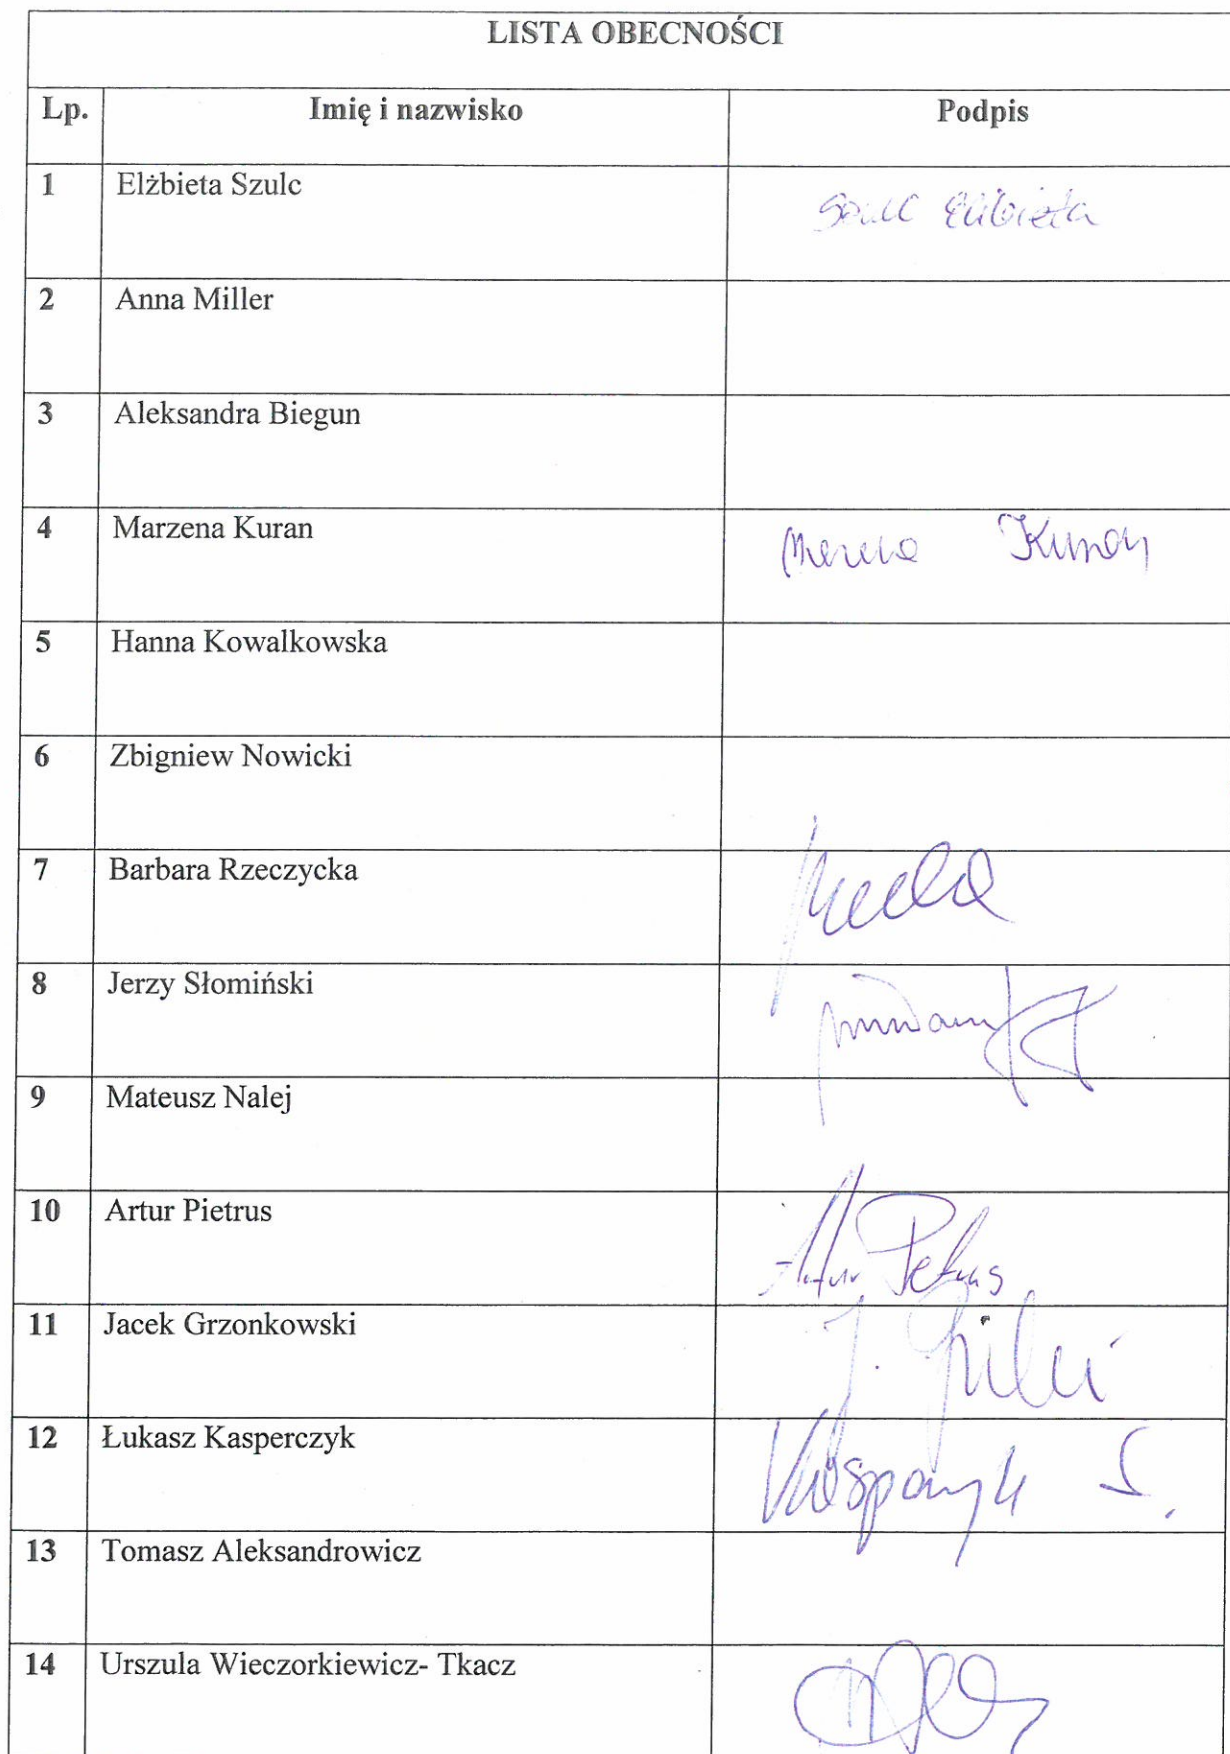 LISTA OBECNOŚCI
Lp. Imię i nazwisko Podpis
1 Elżbieta Szulc Szulc Elżbieta
2 Anna Miller
3 Aleksandra Biegun
4 Marzena Kuran Kuran
5 Hanna Kowalkowska
6 Zbigniew Nowicki
7 Barbara Rzeczycka
8 Jerzy Słomiński
9 Mateusz Nalej
10 Artur Pietrus Artur Pietrus
11 Jacek Grzonkowski J.
12 Łukasz Kasperczyk
13 Tomasz Aleksandrowicz
14 Urszula Wieczorkiewicz- Tkacz